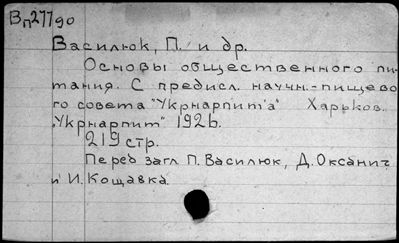 Вп27790
Василюк, П. и др.
Основы общественного пи-
тания. С предисл. научн.-пищево
го совета "Укрнарпит'а" Харьков.
"Укрнарпит" 1926.
219 стр.
Перед загл П. Василюк, Д. Оксанич
и И. Кощавка.